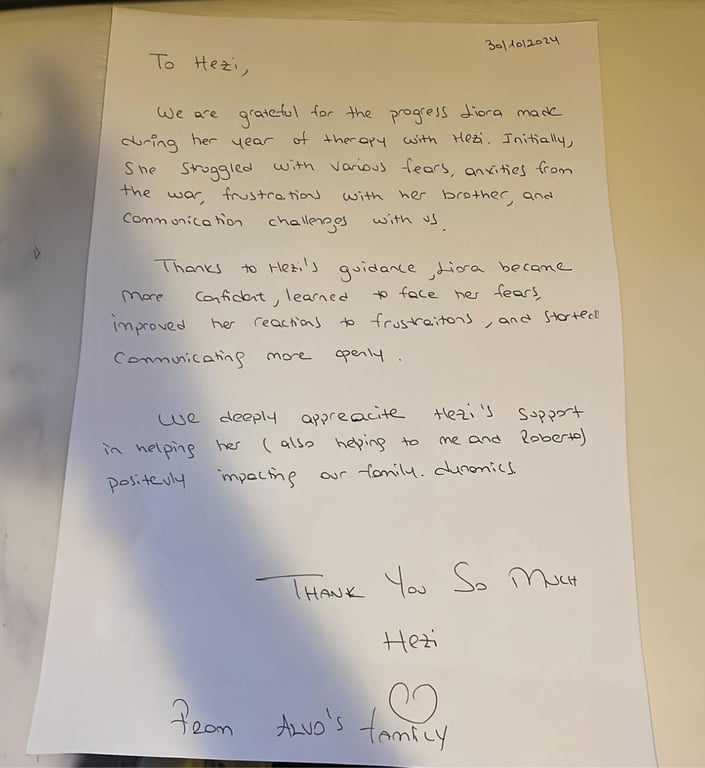 30/10/2024
To Hezi,
We are grateful for the progress Liora made
during her year of therapy with Hezi. Initially,
She struggled with various fears, anxities from
the war, frustrations with her brother, and
Communication challenges with us.
Thanks to Hezi's guidance, Liora became
more confident, learned to face her fears,
improved her reactions to frustraitons, and started
Communicating more openly.
We deeply appreacite Hezi's support
in helping her (also helping to me and Roberto)
positevly impacting our family. dynamics.
THANK YOU SO MUCH
Hezi
From ALVO'S family